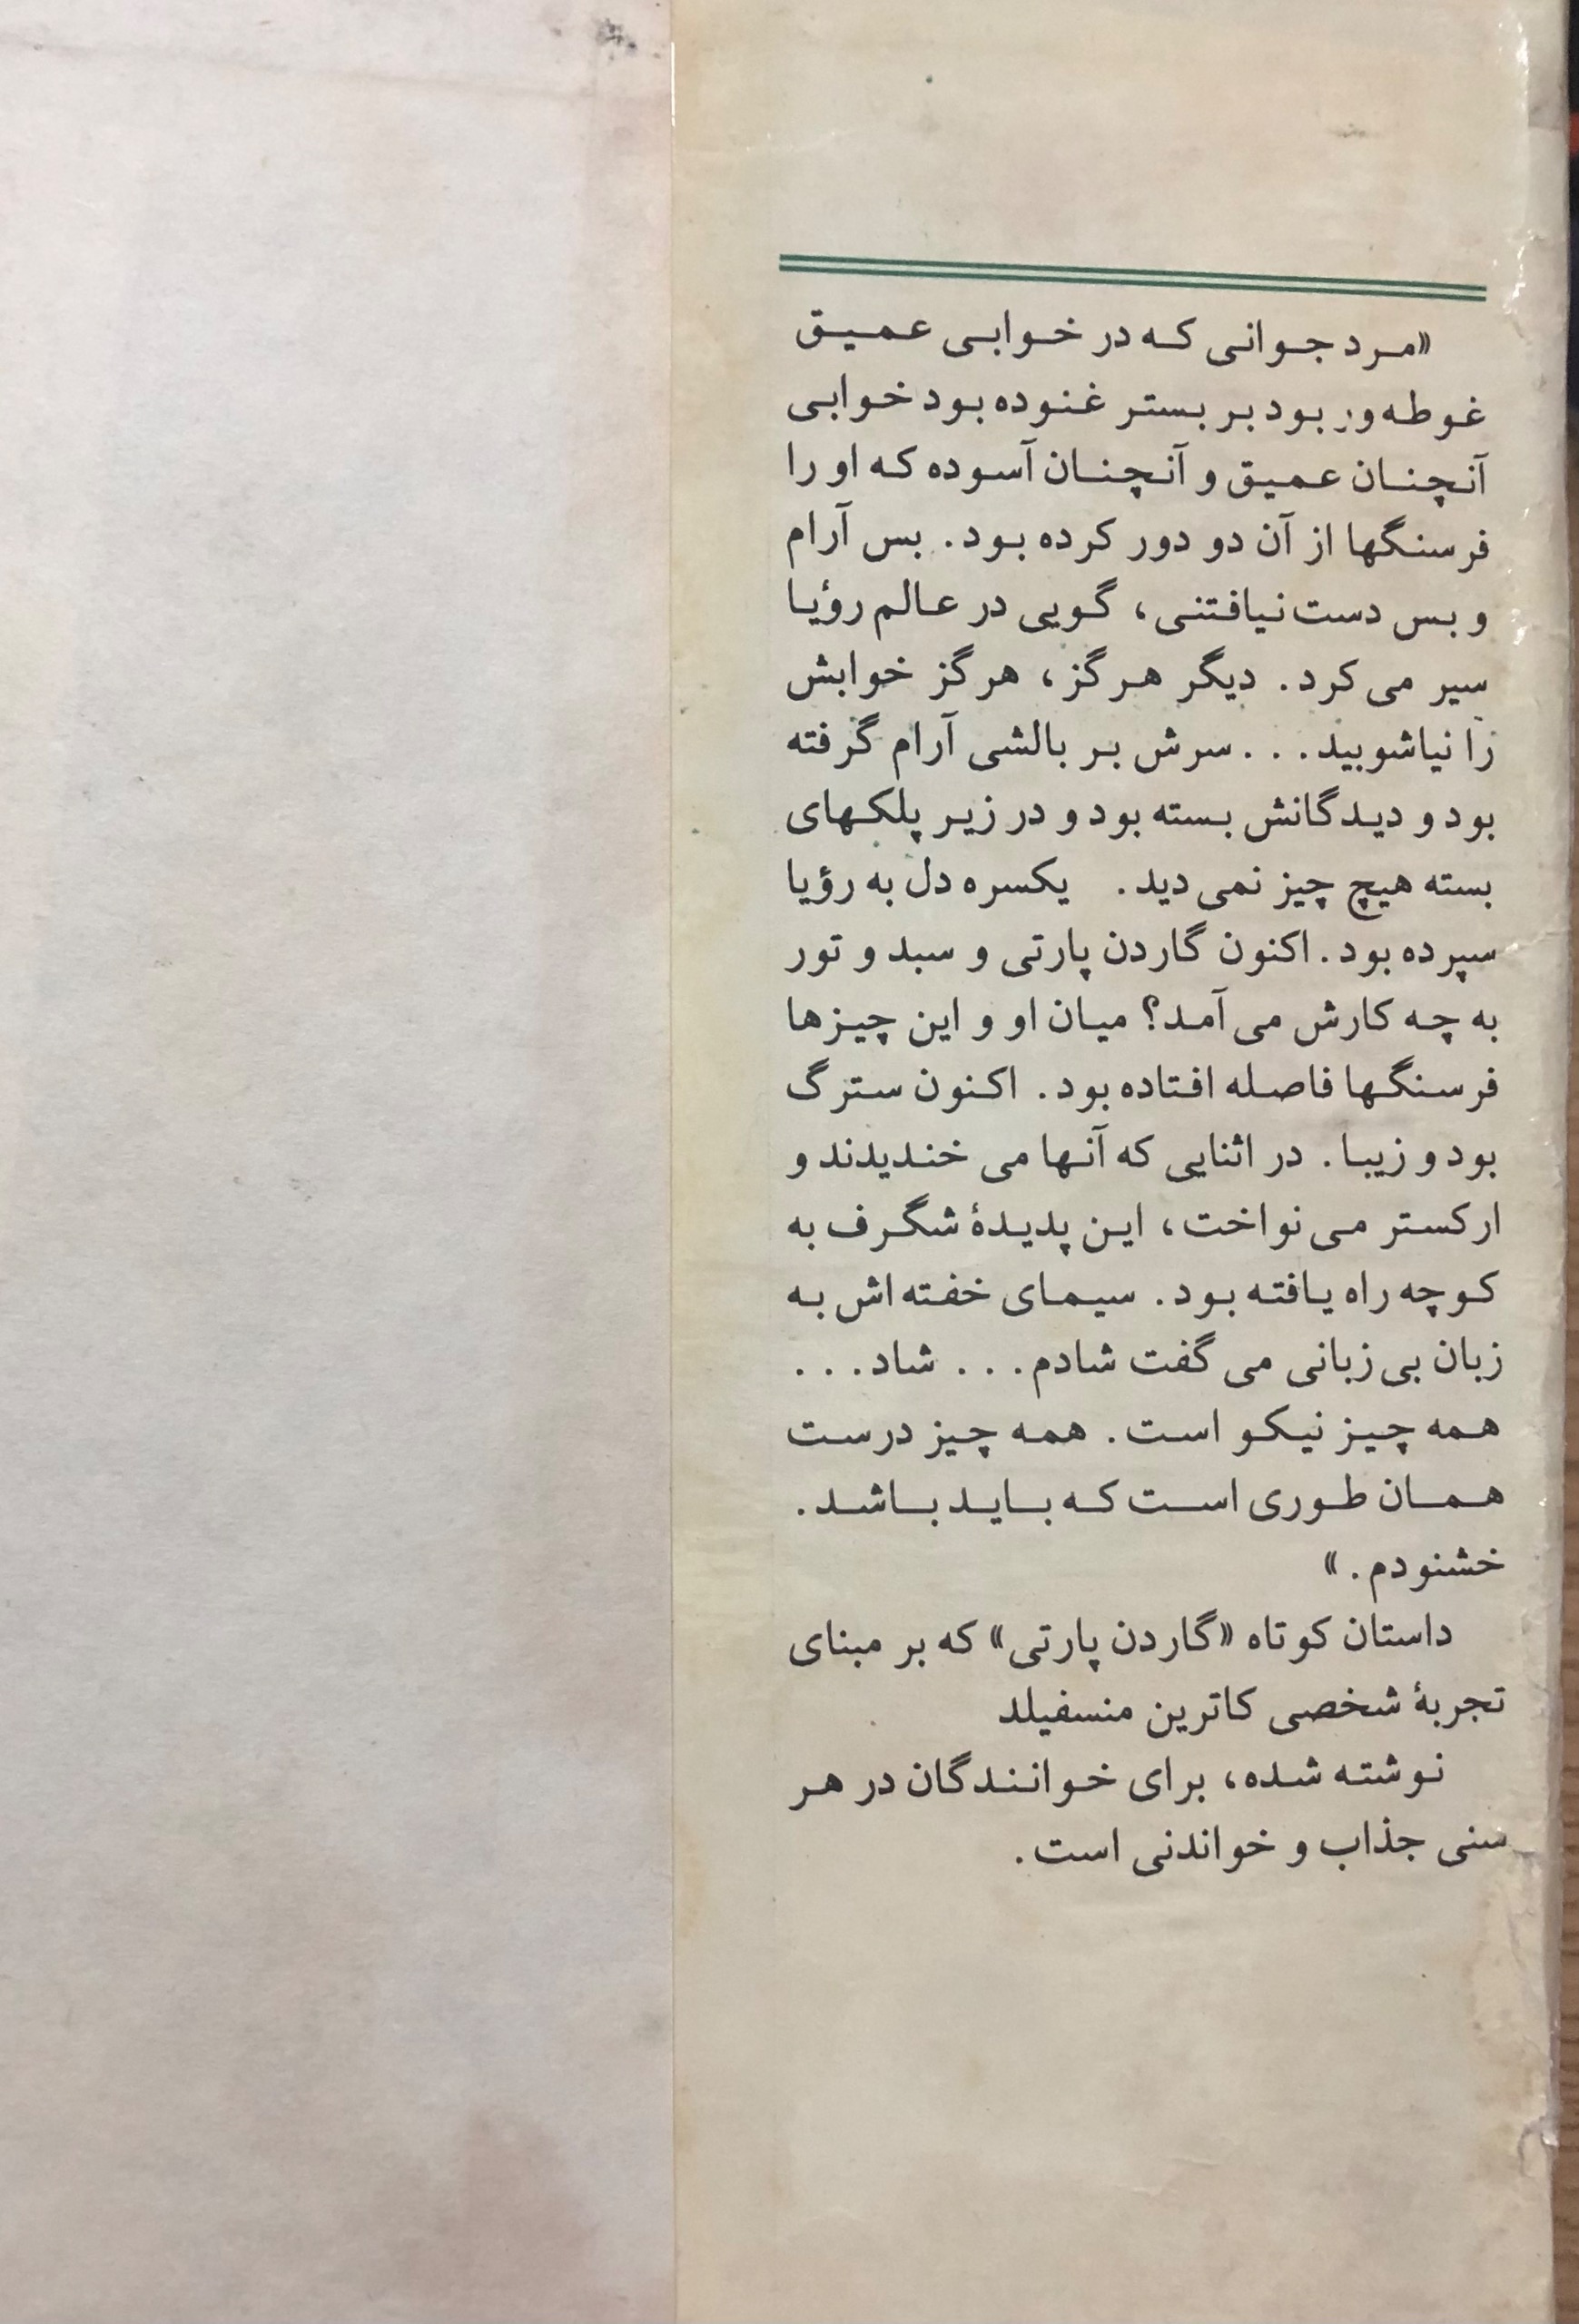 «مرد جوانی که در خوابی عمیق
غوطه‌ور بود بر بستر غنوده بود خوابی
آنچنان عمیق و آنچنان آسوده که او را
فرسنگها از آن دو دور کرده بود. بس آرام
و بس دست‌نیافتنی، گویی در عالم رؤیا
سیر می‌کرد. دیگر هرگز، هرگز خوابش
را نیاشوبید... سرش بر بالشی آرام گرفته
بود و دیدگانش بسته بود و در زیر پلکهای
بسته هیچ چیز نمی‌دید. یکسره دل به رؤیا
سپرده بود. اکنون گاردن پارتی و سبد و تور
به چه کارش می‌آمد؟ میان او و این چیزها
فرسنگها فاصله افتاده بود. اکنون سترگ
بود و زیبا. در اثنایی که آنها می خندیدند و
ارکستر می‌نواخت، این پدیدۀ شگرف به
کوچه راه یافته بود. سیمای خفته‌اش به
زبان بی‌زبانی می گفت شادم... شاد...
همه چیز نیکو است. همه چیز درست
همان طوری است که باید باشد.
خشنودم.»
داستان کوتاه «گاردن پارتی» که بر مبنای
تجربۀ شخصی کاترین منسفیلد
نوشته شده، برای خوانندگان در هر
سنی جذاب و خواندنی است.